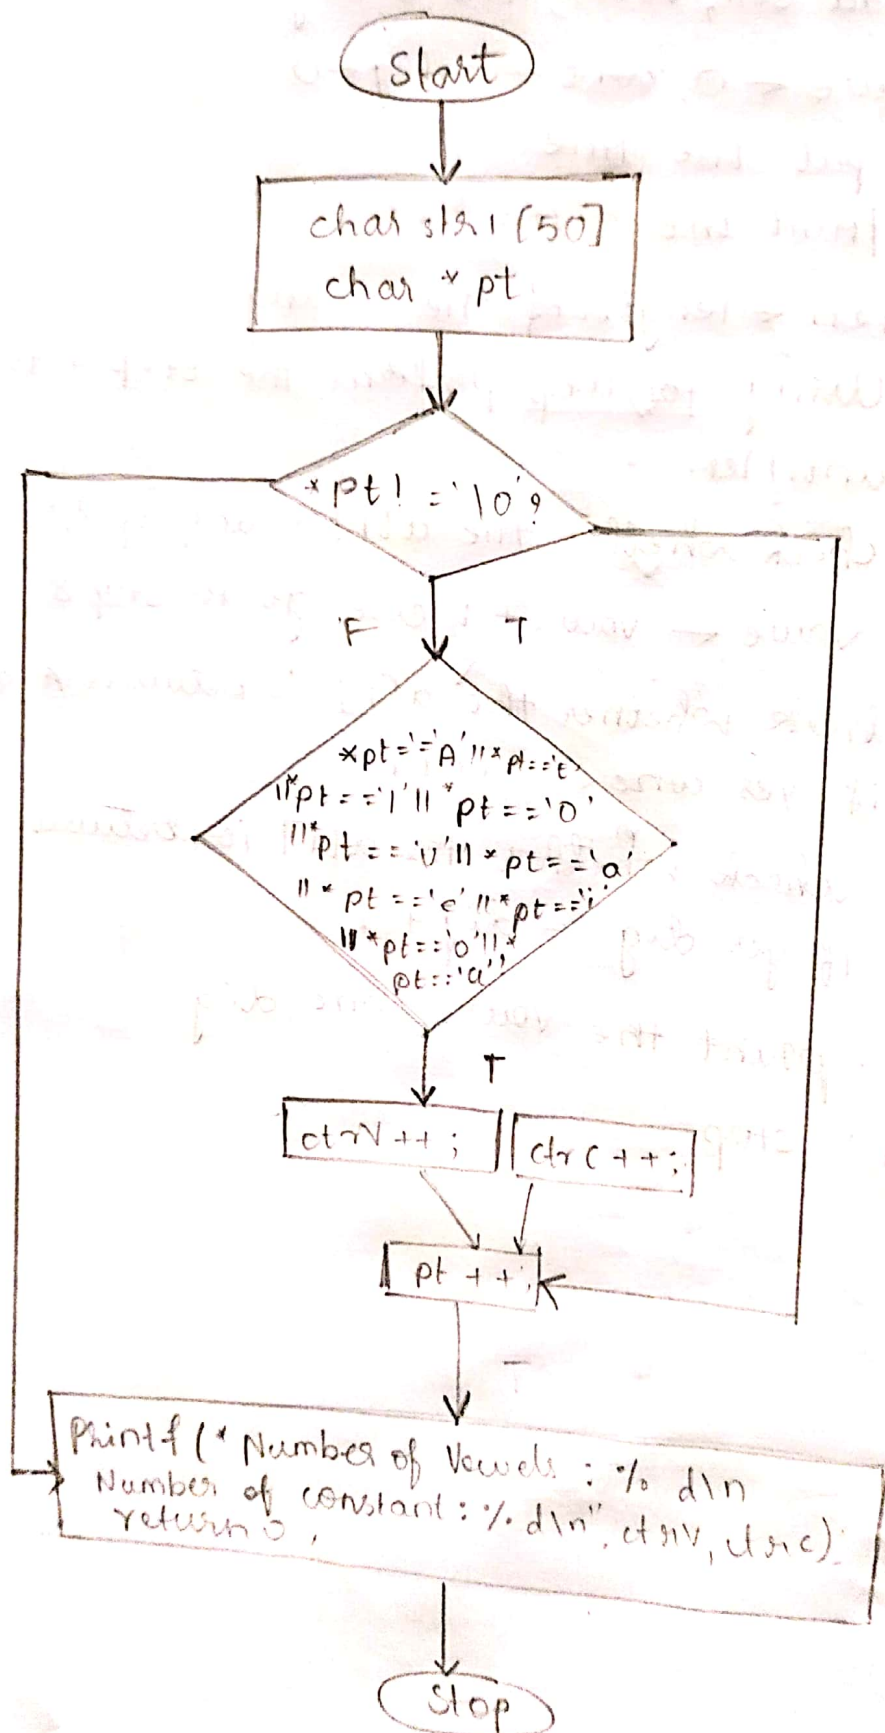 Start
char str1 [50]
char * pt
*pt! ='\0'?
F T
*pt=='A'||*pt=='E'
||*pt=='I'||*pt=='O'
||*pt=='U'||*pt=='a'
||*pt=='e'||*pt=='i'
||*pt=='o'||*
pt=='u'
T
ctrV++;
ctrC++;
pt++;
T
Printf(" Number of Vowels : % d\n
Number of constant : % d\n", ctrV, ctrc);
return 0;
Stop